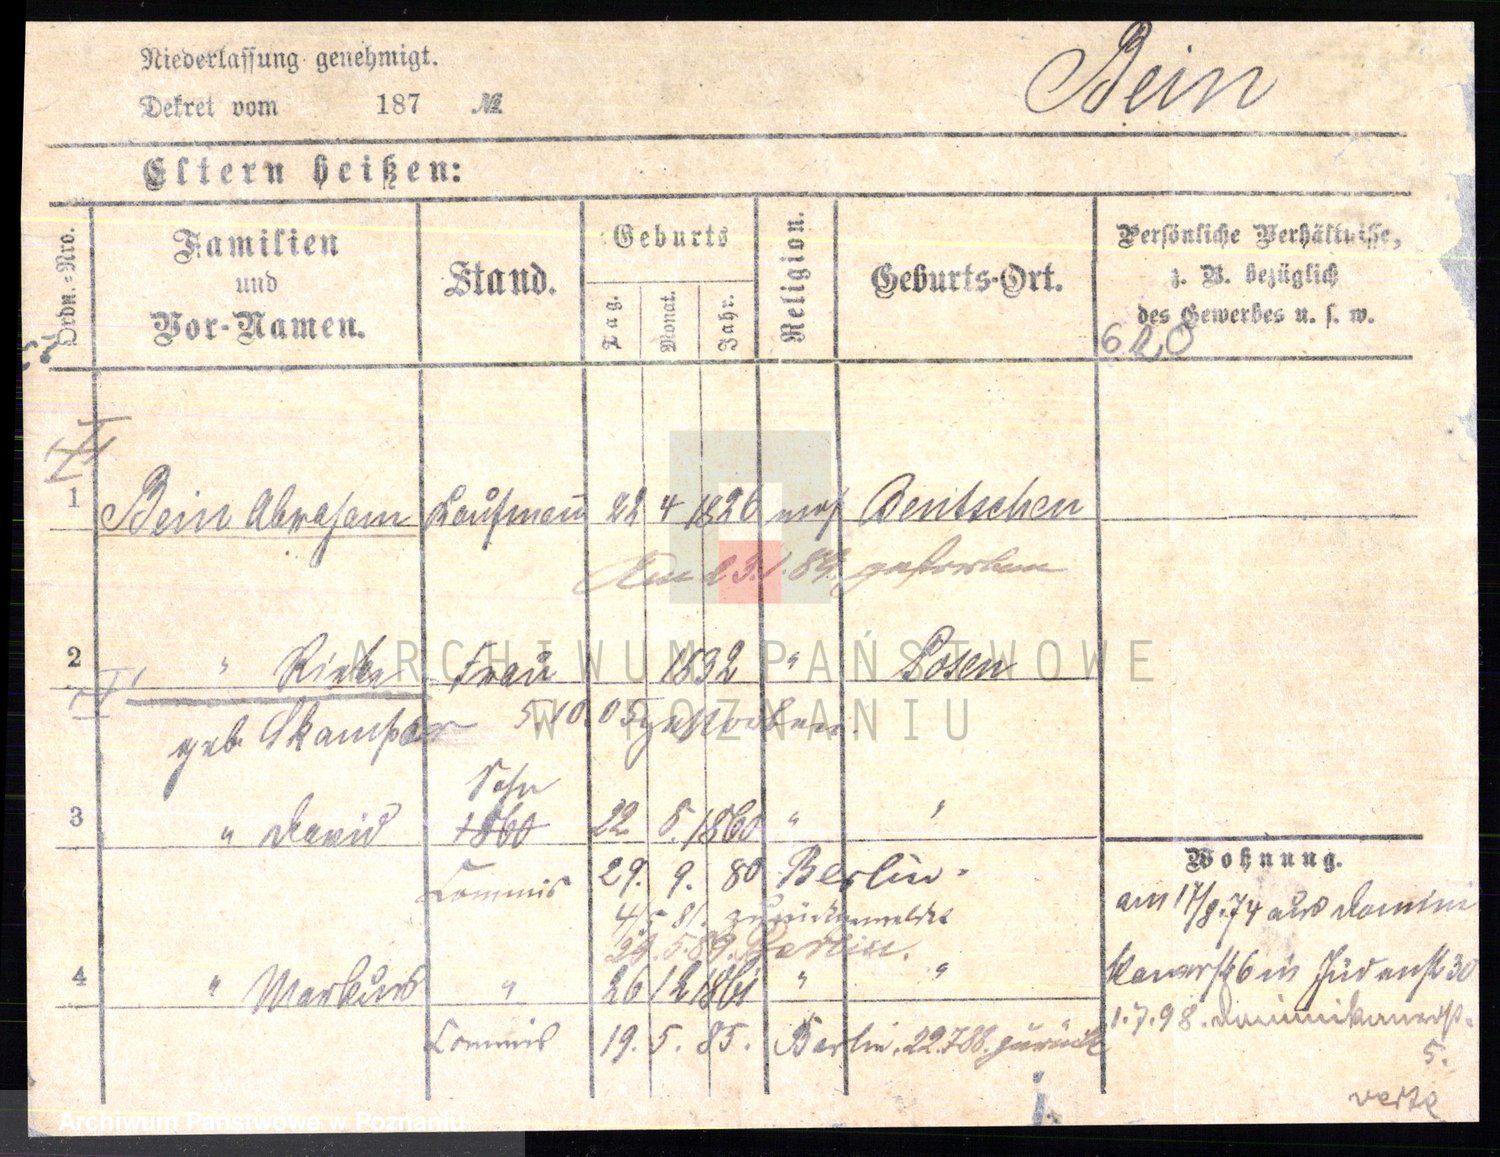 Niederlassung genehmigt.
Dekret vom 187 №
Bein
Eltern heißen:
Ordn.-Nro.
Familien und Vor-Namen.
Stand.
Geburts
Tag.
Monat.
Jahr.
Religion.
Geburts-Ort.
Persönliche Verhältnisse,
z. B. bezüglich
des Gewerbes u. s. w.
620
1 Bein Abraham Kaufmann 22 4 1826 mos Bentschen
Am 23.1.89. gestorben
2 " Frau 1832 " Posen
geb.
5 10.05 gestorben.
Sohn
3 " David 1860 22 5. 1860 " "
Commis 29. 9. 80 Berlin.
4/5 81. zurückgemeldet
29.5.89. Berlin.
4 " Markus " 26 12 1861 " "
Commis 19. 5. 85. Berlin. 22.7.88. zurück
Wohnung.
am 17/8.74 aus Domini
kanerst 6 in Judenst 30
1.7.98. Dominikanerst.
5.
verte
ARCHIWUM PAŃSTWOWE
W POZNANIU
Archiwum Państwowe w Poznaniu